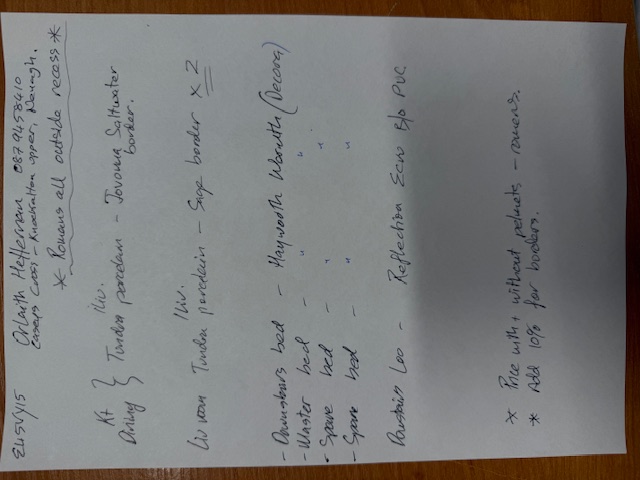 E45VY15 Orlaith Heffernan 087 9458410
Caseys Cross - Knockalton upper, Nenagh.
* Romans all outside recess *
Kt } iliv.
Dining } Tundra porcelain - Saltwater
border.
iliv.
Liv room Tundra porcelain - Sage border x 2
- Downstairs bed - Hayworth Warmth (Decora)
- Master bed - " "
- Spare bed - " "
- Spare bed - " "
Downstairs Loo - Reflection Ecru B/o PVC
* Price with + without pelmets - romans.
* Add 10% for borders.